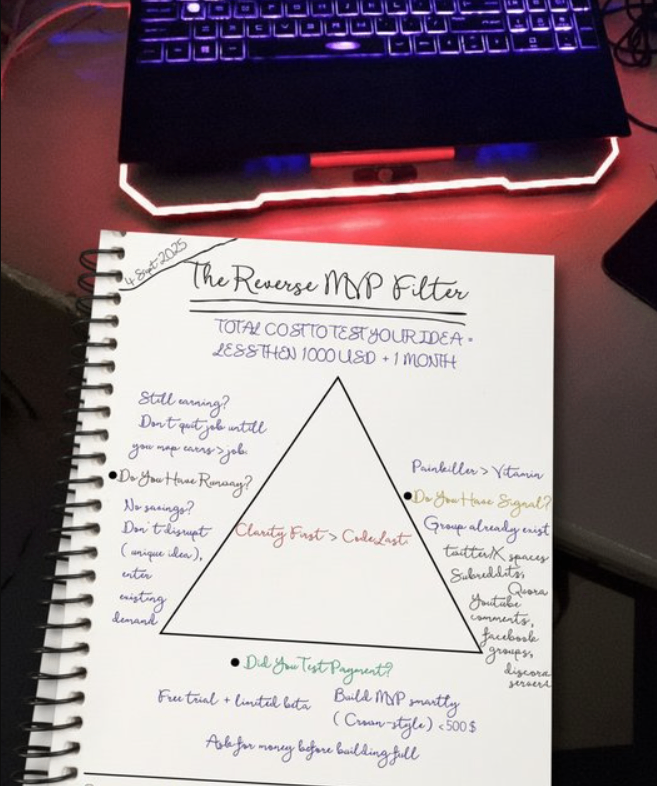 4 Sept 2025
The Reverse MVP Filter
TOTAL COST TO TEST YOUR IDEA =
LESS THEN 1000 USD + 1 MONTH
Still earning?
Don't quit job untill
you mvp earns > job.
Do You Have Runway?
No savings?
Don't disrupt
(unique idea),
enter
existing
demand
Clarity First > Code Last.
Painkiller > Vitamin
Do You Have Signal?
Group already exist
twitter/X spaces
Subreddits,
Quora
Youtube
comments,
facebook
groups,
discord
servers
Did You Test Payment?
Free trial + limited beta
Build MVP smartly
(Crown-style) <500 $
Ask for money before building full